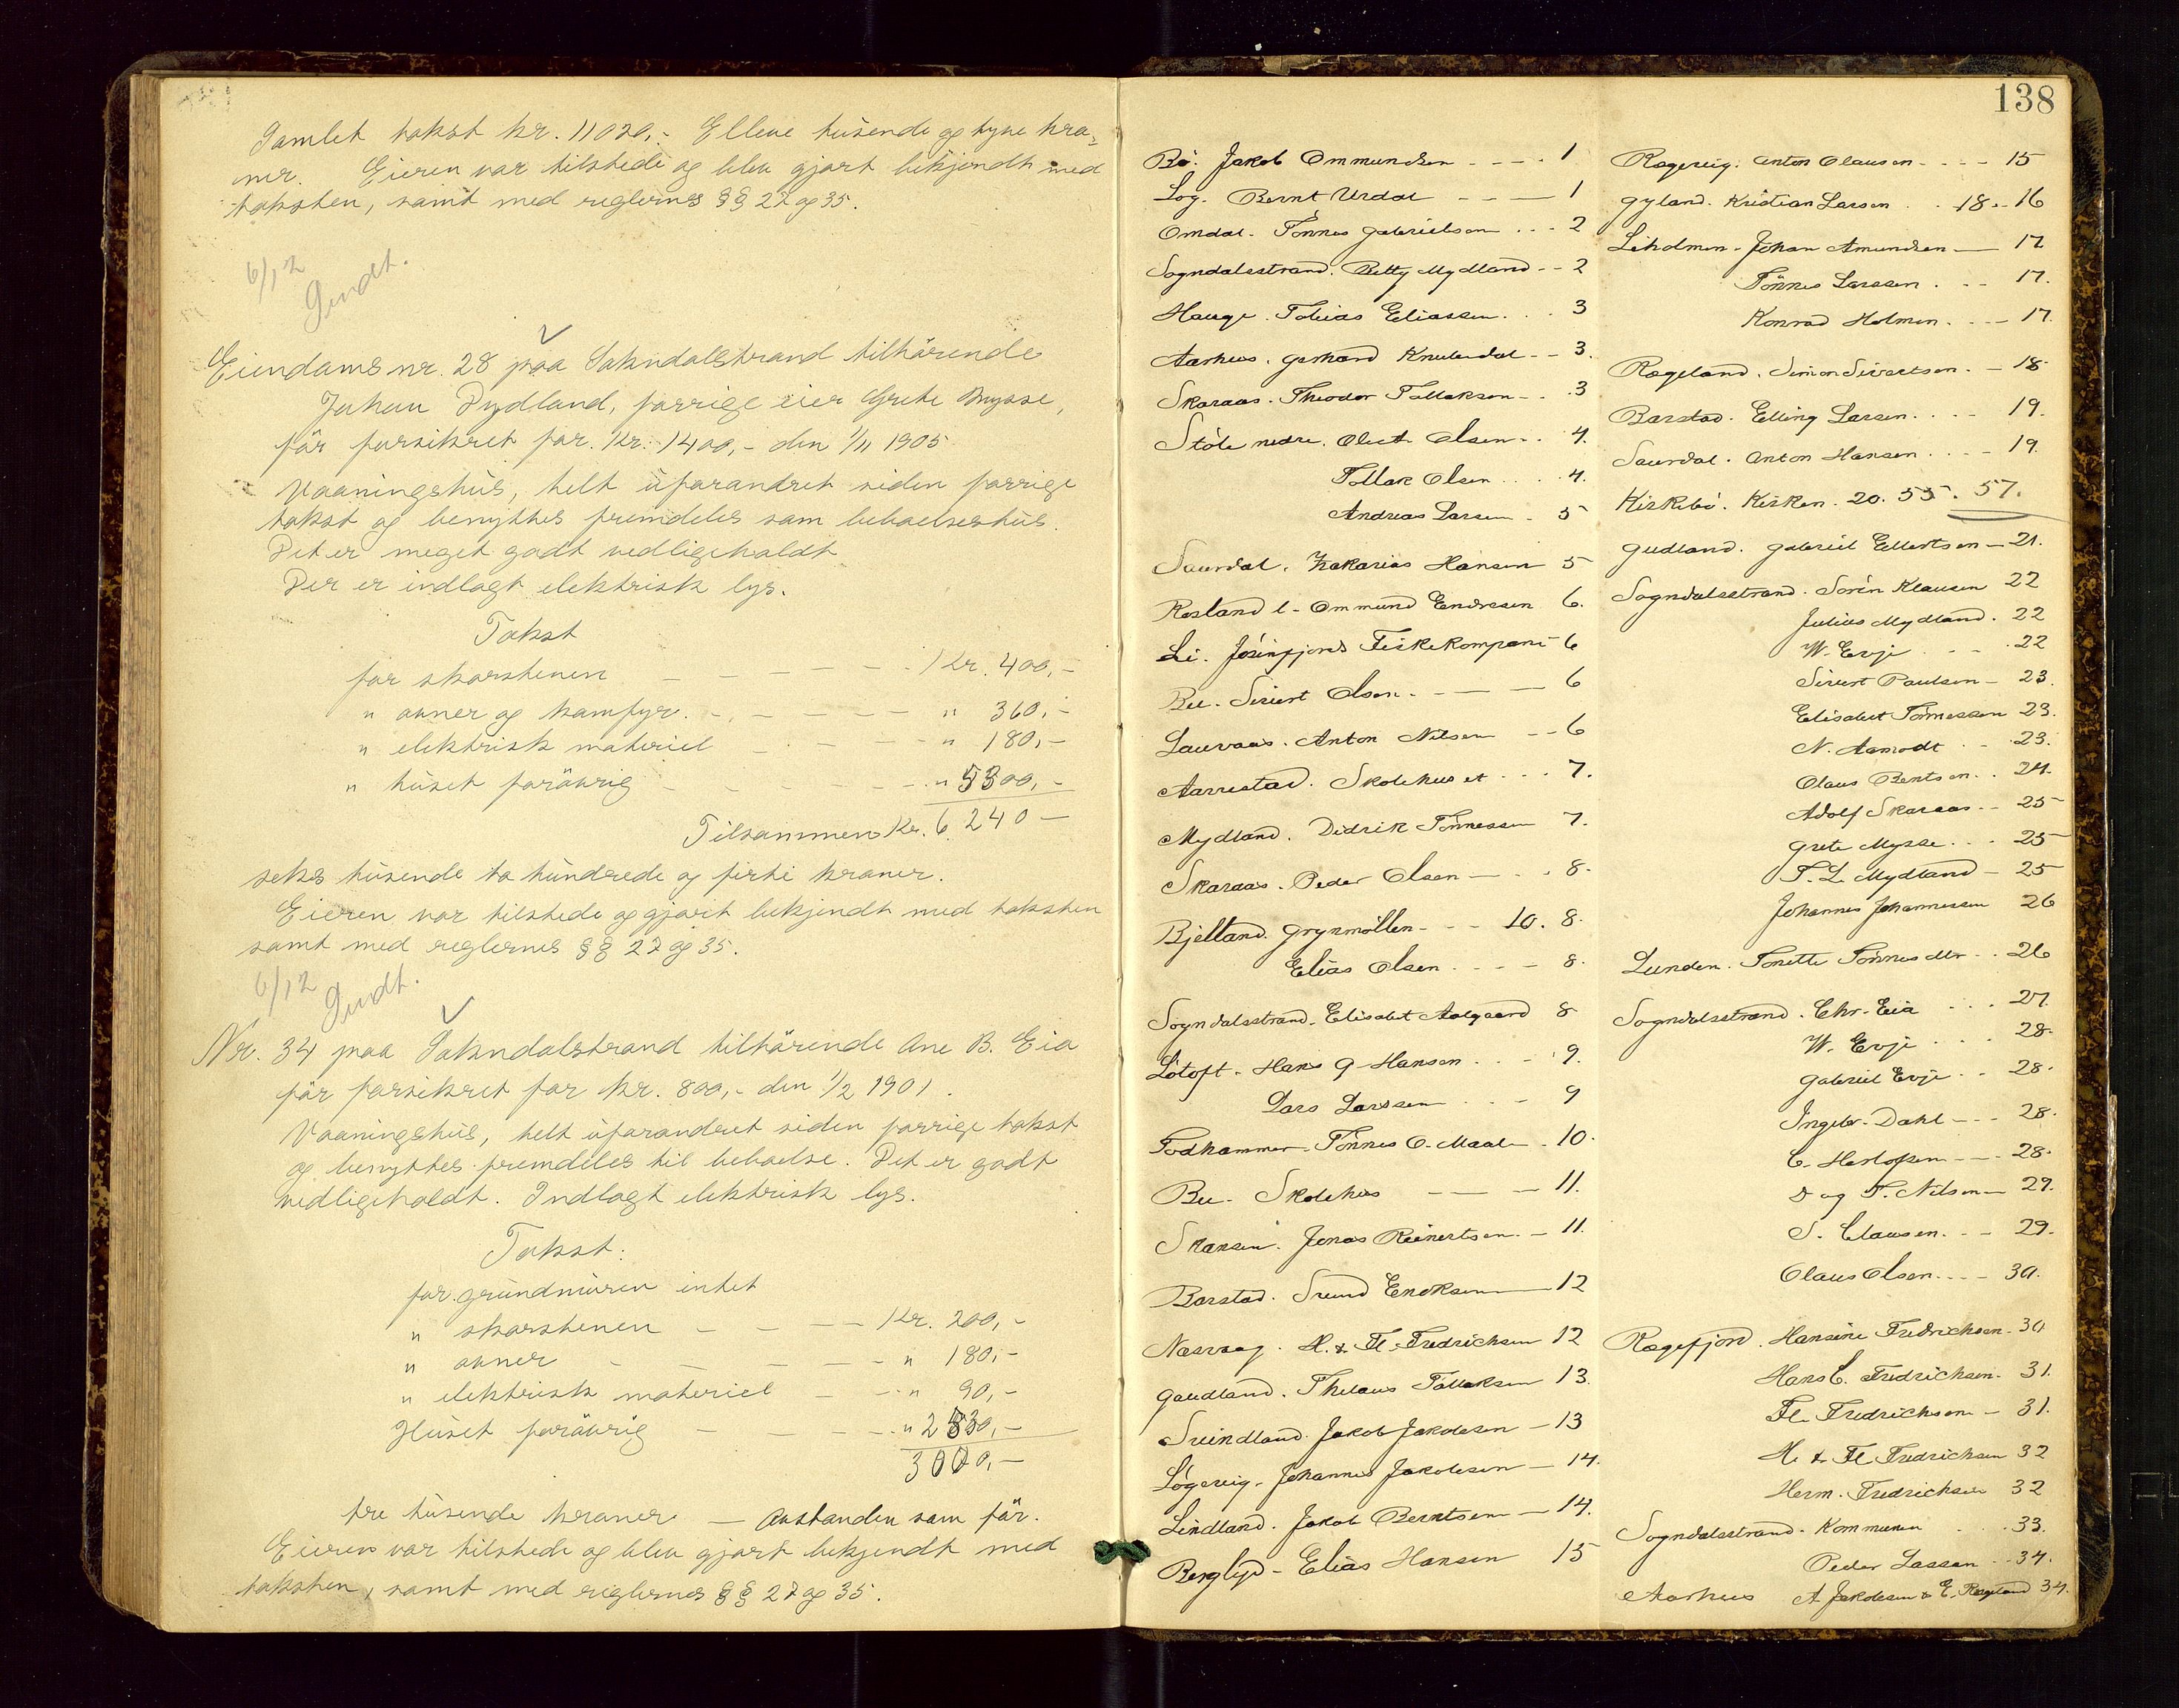 Samlet takst kr. 11020,- Elleve tusende og tyve kro-
ner. Eieren var tilstede og blev gjort bekjendt med
taksten, samt med reglernes §§ 27 og 35.
6/12
Sendt.
Eiendoms nr. 28 paa Sokndalstrand tilhörende
Johan Dydland, forrige eier Grete Mysse,
för forsikret for. Kr. 1400,- den 1/11 1905
Vaaningshus, helt uforandret siden forrige
takst og benyttes fremdeles som beboelseshus.
Det er meget godt vedligeholdt.
Der er indlagt elektrisk lys.
Takst
for skorstenen - - - - Kr. 400,-
" ovner og komfyr. - - - - - " 360,-
" elektrisk materiel - - - - " 180,-
" huset forövrig - - - - - " 5300,-
Tilsammen Kr. 6240 -
seks tusende to hundrede og firti kroner.
Eieren var tilstede og gjort bekjendt med taksten
samt med reglernes §§ 27 og 35.
6/12
Sendt.
Nr. 34 paa Sokndalstrand tilhörende Ane B. Eia
för forsikret for kr. 800,- den 1/2 1901.
Vaaningshus, helt uforandret siden forrige takst
og benyttes fremdeles til beboelse. Det er godt
vedligeholdt. Indlagt elektrisk lys.
Takst:
for grundmuren intet
" skorstenen - - - - Kr. 200,-
" ovner - - - - - " 180,-
" elektrisk materiel - - " 90,-
Huset forövrig - - - - " 2530,-
3000,-
tre tusende kroner — Avstanden som för.
Eieren var tilstede og blev gjort bekjendt med
taksten, samt med reglernes §§ 27 og 35.
138
Bö. Jakob Ommundsen - - - - 1
Log. Bernt Urdal - - - 1
Omdal. Tönnes Gabrielsen . . . 2
Sogndalsstrand. Betty Mydland - - 2
Hauge. Tobias Eliassen . . . 3
Aarhus. Gerhard Knubedal - - 3.
Skaraas. Theodor Tollaksen - . 3
Stöle nedre. Olest Olsen - . 4.
Tollak Olsen . . . . 4.
Andreas Larsen . 5
Saurdal. Zakarias Hansen 5
Rosland l - Ommund Endresen 6.
Li. Jösinfjords Fiskekompani 6
Bu. Sivert Olsen. - - - - 6
Lauvaas. Anton Nilsen - - 6
Aarrestad. Skolehuset . . . 7.
Mydland. Didrik Tönnessen 7.
Skaraas. Peder Olsen - - . . 8.
Bjelland. Grynmöllen - - - 10. 8.
Elias Olsen . - - - 8.
Sogndalsstrand. Elisabet Aalgaard 8
Lötoft. Hans G Hansen . . - . 9.
Lars Larssen . . - 9
Todhammer. Tönnes O. Maale . 10.
Bu. Skolehus - - - 11.
Skansen. Jonas Reinertsen. - 11.
Barstad. Svend Enoksen - 12
Nesvaag. H. & Fl. Fredrichsen 12
Gaudland. Thelaus Tollaksen 13.
Svindland. Jakob Jakobsen - 13
Lögereig. Johannes Jakobsen - 14.
Lindland. Jakob Berntsen - 14.
Berglyd - Elias Hansen 15
Rögereig. Anton Olausen . - - - 15
Gyland. Kristian Larsen . . 18. - 16
Liholmen. Johan Amundsen - 17
Tönnes Larssen . . - 17.
Konrad Holmen. . - - 17.
Rægeland. Simon Sivertsen. - 18
Barstad. Elling Larsen . . . - 19.
Saurdal. Anton Hansen . . . - 19.
Kirkebö. Kirken. 20. 55. 57.
Gudland. Gabriel Ellertsen - 21.
Sogndalsstrand. Sörin Klausen 22
Julius Mydland. 22
W. Evje . . - . 22
Sivert Paulsen - 23.
Elisabet Tönnessen 23.
N. Aamodt . - . 23.
Olaus Bentsen . . 24.
Adolf Skaraas. - 25
Grete Mysse. . . 25
T. L. Mydland - 25
Johannes Johannessen 26
Lunden. Tonette Tönnesdtr . . 26
Sogndalsstrand. Chr. Eia . . . 27.
W. Evje . . . . 28.
Gabriel Evje. . . 28.
Ingebr. Dahl - - . 28.
C. Herlofsen - - - 28.
D og T. Nilsen - 29.
S. Clausen. . - - 29.
Olaus Olsen. . - - 30.
Rægefjord. Hansine Fredrichsen. 30
Hans C. Fredrichsen. 31.
Fl. Fredrichsen - 31.
H. & Fl Fredrichsen 32
Herm. Fredrichsen 32
Sogndalsstrand. Kommunen . . . 33.
Peder Lassen . . 34.
Aarhus A Jakobsen & E. Rægeland 34.